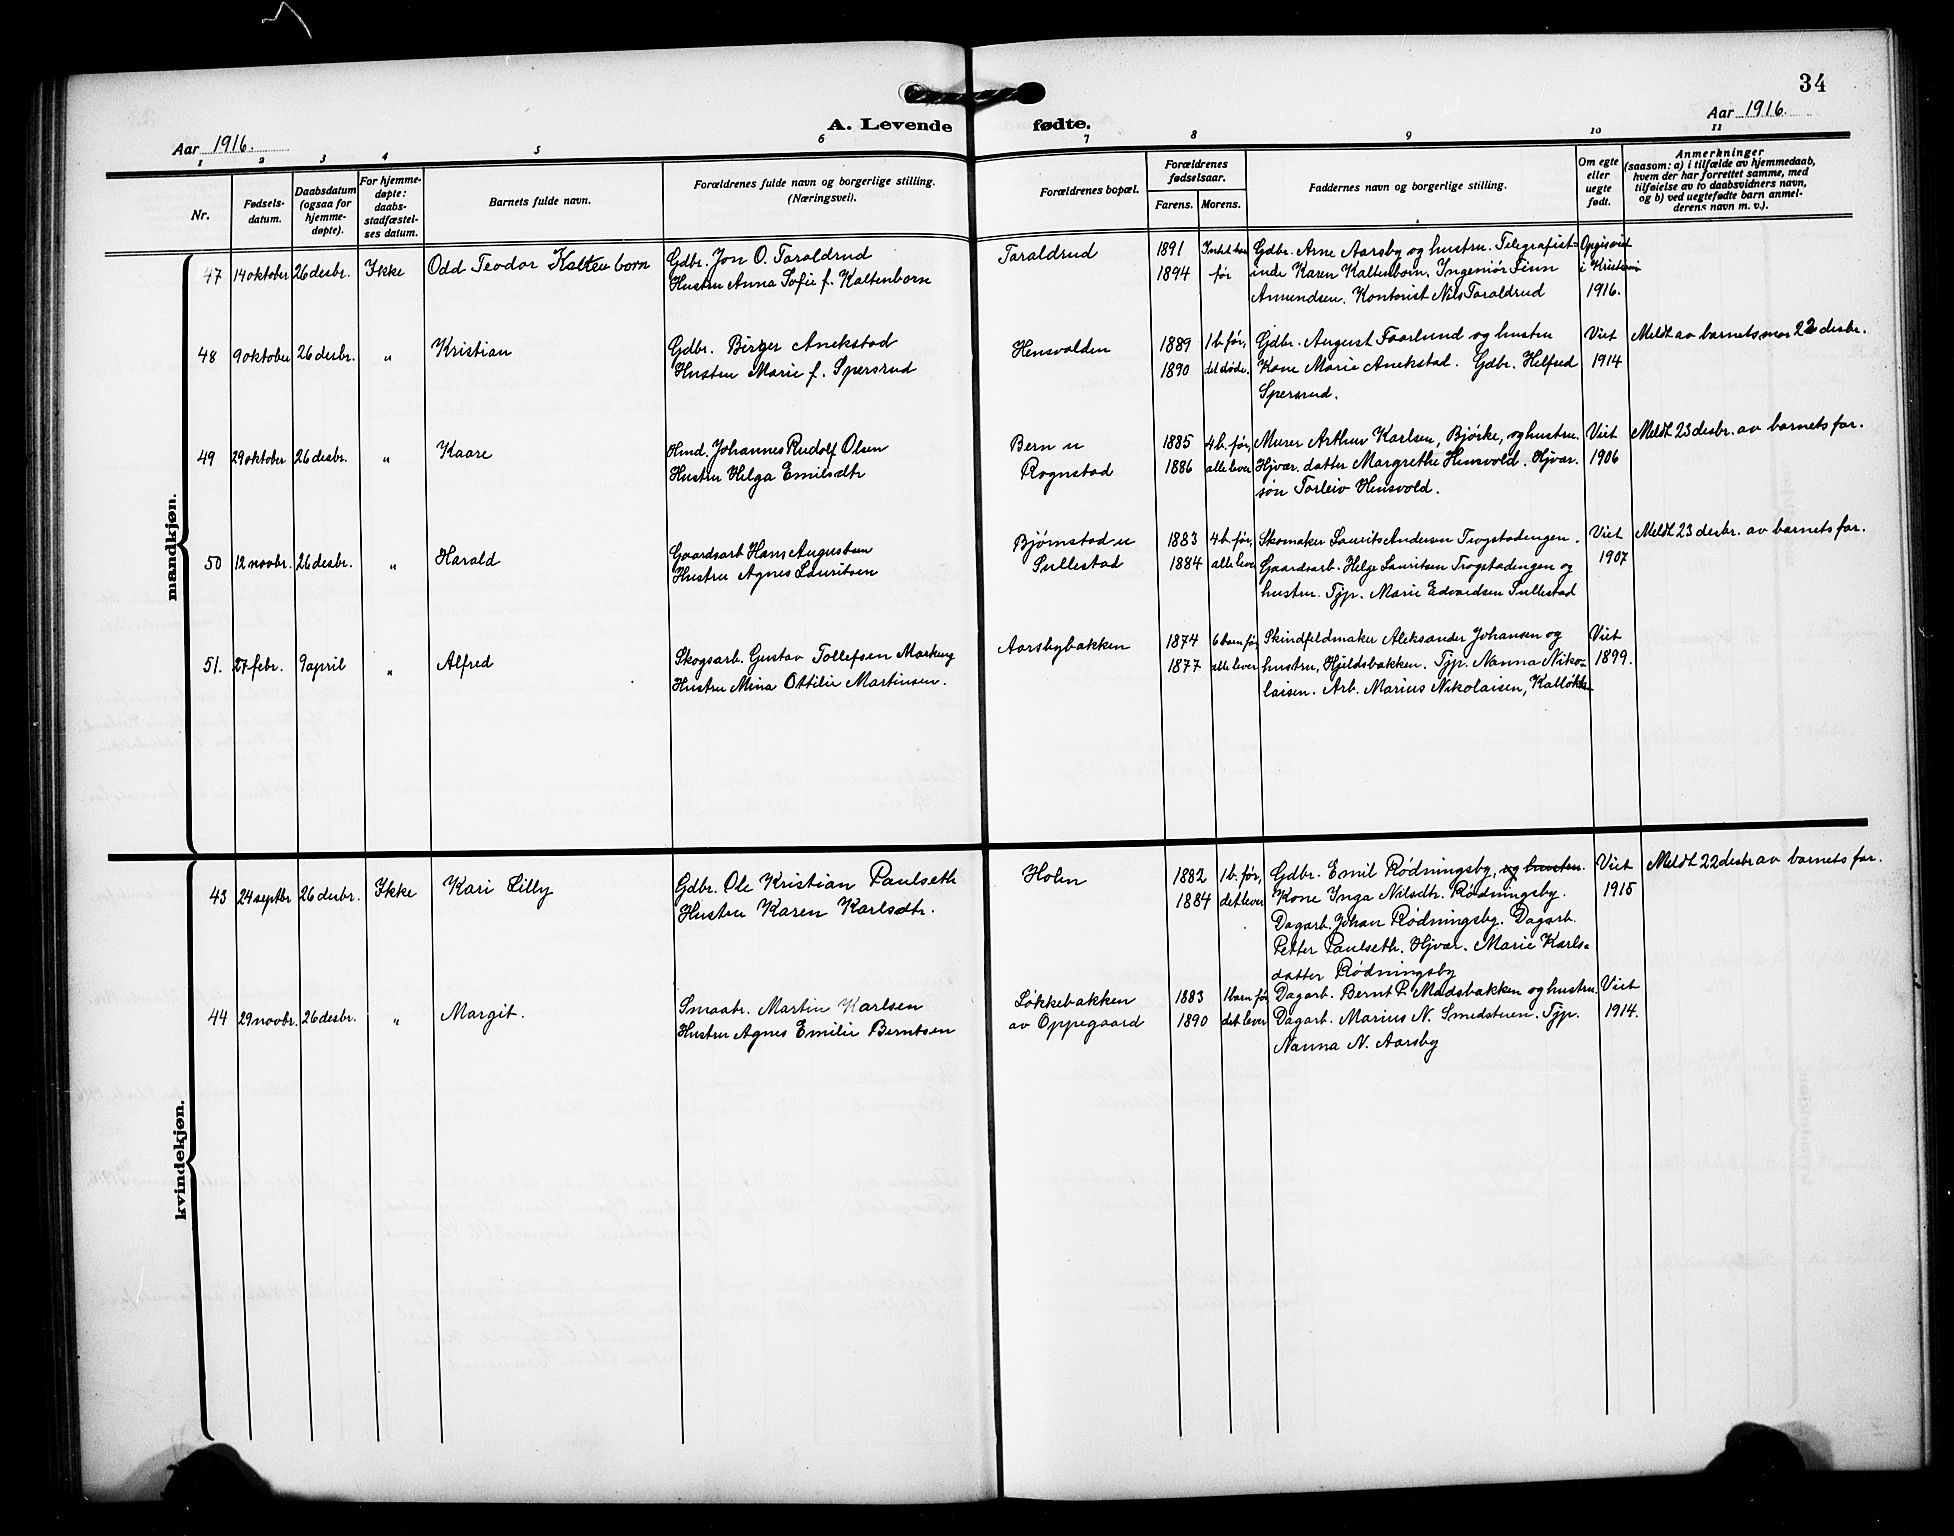 34
A. Levende fødte.
Aar 1916.
Aar 1916.
1 2 3 4 5 6 7 8 9 10 11
Nr.
Fødsels-
datum.
Daabsdatum
(ogsaa for
hjemme-
døpte).
For hjemme-
døpte:
daabs-
stadfæstel-
ses datum.
Barnets fulde navn.
Forældrenes fulde navn og borgerlige stilling.
(Næringsvei).
Forældrenes bopæl.
Forældrenes
fødselsaar.
Farens. Morens.
Faddernes navn og borgerlige stilling.
Om egte
eller
uegte
født.
Anmerkninger
(saasom: a) i tilfælde av hjemmedaab,
hvem der har forrettet samme, med
tilføielse av to daabsvidners navn,
og b) ved uegtefødte barn anmel-
derens navn m. v.).
mandkjøn.
47 14 oktober 26 desbr. Ikke Odd Teodor Kaltenborn
Gdbr. Jon O. Taraldrud
Hustru Anna Sofie f. Kaltenborn
Taraldrud
1891
1894
før
Gdbr. Arne Aarsby og hustru. Telegrafist-
inde Karen Kaltenborn, Ingeniør Finn
Amundsen. Kontorist Nils Taraldrud
i
1916.
48 9 oktober 26 desbr. " Kristian
Gdbr. Birger Anekstad
Hustru Marie f. Spersrud
Hensvolden
1889 1 b. før,
1890 det døde.
Gdbr. August Faarlund og hustru
Kone Marie Anekstad. Gdbr. Helfred
Spersrud.
Viet
1914
Meldt av barnets mor 22 desbr.
49 29 oktober 26 desbr. " Kaare
Hmd. Johannes Rudolf Olsen
Hustru Helga Emilsdtr
Bern u
Rognstad
1885 4 b. før,
1886 alle lever
Murer Arthur Karlsen, Bjørke, og hustru.
Hjvær. datter Margrethe Hensvold. Hjvær.
søn Torleiv Hensvold.
Viet
1906
Meldt 23 desbr. av barnets far.
50 12 novbr. 26 desbr. " Harald
Gaardsarb Hans Augustsen
Hustru Agnes Lauritsen
Bjørnstad u
Sullestad
1883 4 b. før,
1884 alle lever
Skomaker Laurits Andersen Trogstadengen.
Gaardsarb. Helge Lauritsen Trogstadengen og
hustru. Tjp. Marie Edvardsen Sullestad
Viet
1907
Meldt 23 desbr. av barnets far.
51. 27 febr. 9 april " Alfred
Skogsarb. Gustav Tollefsen Markeng
Hustru Mina Ottilie Martinsen.
Aarsbybakken
1874 6 barn før
1877 alle lever
Skindfeldmaker Aleksander Johansen og
hustru, Hjeldsbakken. Tjp. Nanna Niko-
laisen. Arb. Marius Nikolaisen,
Viet
1899.
kvindekjøn.
43 24 septbr 26 desbr. Ikke Kari Lilly
Gdbr. Ole Kristian Paulseth
Hustru Karen Karlsdtr.
Holen
1882 1 b. før,
1884 det lever
Gdbr. Emil Rødningsby, og hustru.
Kone Inga Nilsdtr. Rødningsby.
Dagarb. Johan Rødningsby. Dagarb.
Petter Paulseth. Hjvær. Marie Karls-
datter Rødningsby
Viet
1915
Meldt 22 desbr av barnets far.
44 29 novbr. 26 desbr. " Margit.
Smaabr. Martin Karlsen
Hustru Agnes Emilie Berntsen
Løkkebakken
av Oppegaard
1883 1 barn før
1890 det lever
Dagarb. Bernt P. Madsbakken og hustru
Dagarb. Marius N. Smedstuen. Tjp.
Nanna N. Aarsby
Viet
1914.